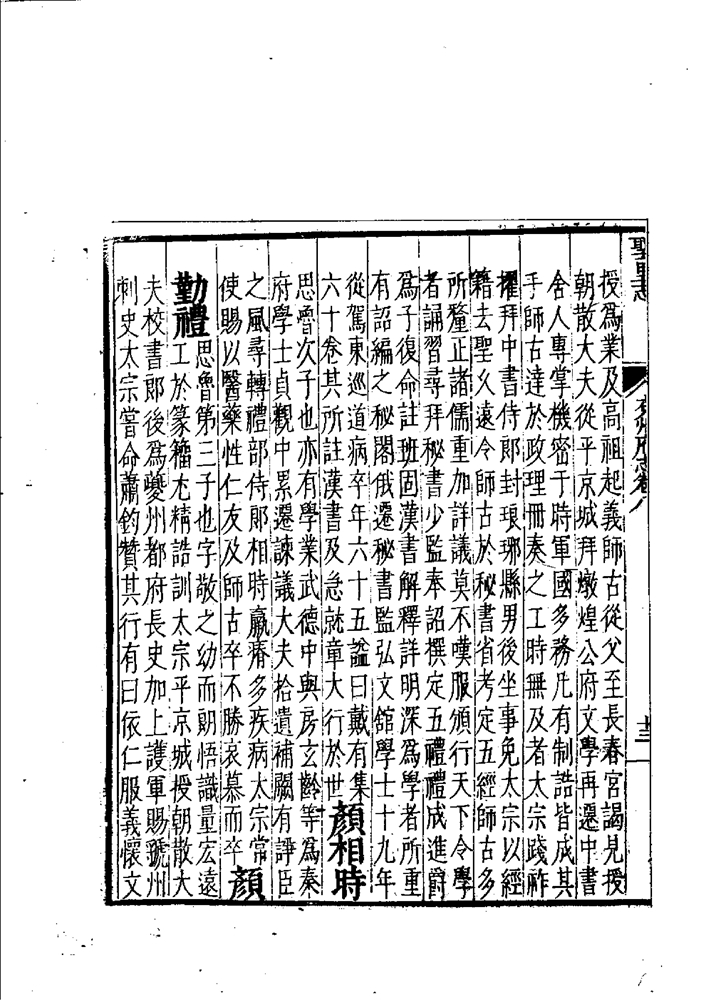 聖賢志
兗州府志卷八
十三
授爲業及高祖起義師古從父至長春宮謁見授
朝散大夫從平京城拜燉煌公府文學再遷中書
舍人專掌機密于時軍國多務凡有制誥皆成其
手師古達於政理冊奏之工時無及者太宗踐祚
擢拜中書侍郎封琅琊縣男後坐事免太宗以經
籍去聖乆遠令師古於秘書省考定五經師古多
所釐正諸儒重加詳議莫不嘆服頒行天下令學
者誦習尋拜秘書少監奉詔撰定五禮禮成進爵
爲子復命註班固漢書解釋詳明深爲學者所重
有詔編之秘閣俄遷秘書監弘文館學士十九年
從駕東巡道病卒年六十五諡曰戴有集
六十卷其所註漢書及急就章大行於世顏相時
思魯次子也亦有學業武德中與房玄齡等爲秦
府學士貞觀中累遷諫議大夫拾遺補闕有諍臣
之風尋轉禮部侍郎相時羸瘠多疾病太宗常
使賜以醫藥性仁友及師古卒不勝哀慕而卒顏
勤禮思魯第三子也字敬之幼而朗悟識量宏遠
工於篆籀尤精詁訓太宗平京城授朝散大
夫校書郎後爲夔州都府長史加上護軍賜虢州
刺史太宗嘗命蕭鈞贊其行有曰依仁服義懷文